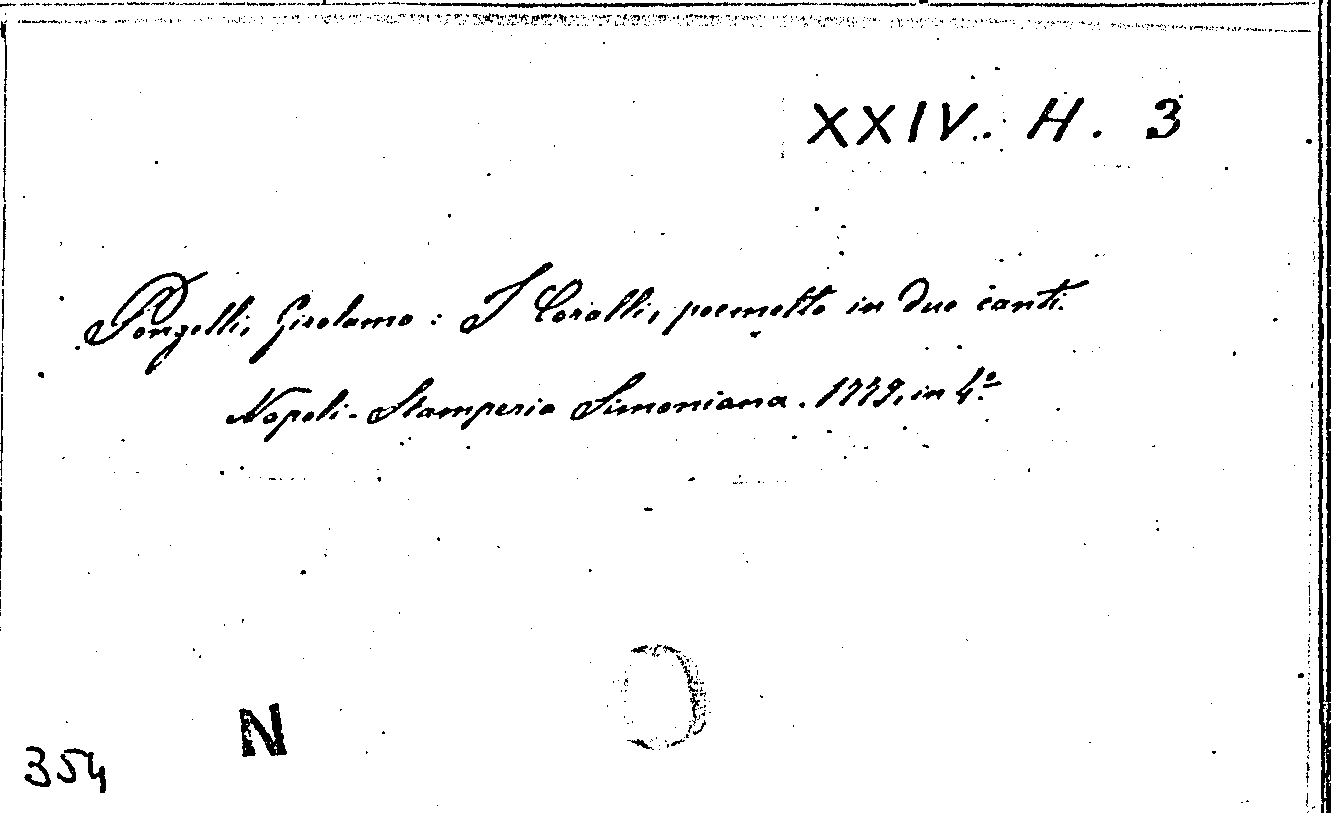 XXIV. H. 3
Pongelli, Girolamo: I Coralli, poemetto in due canti.
Napoli - Stamperia Simoniana. 1779, in 4.º
N
354